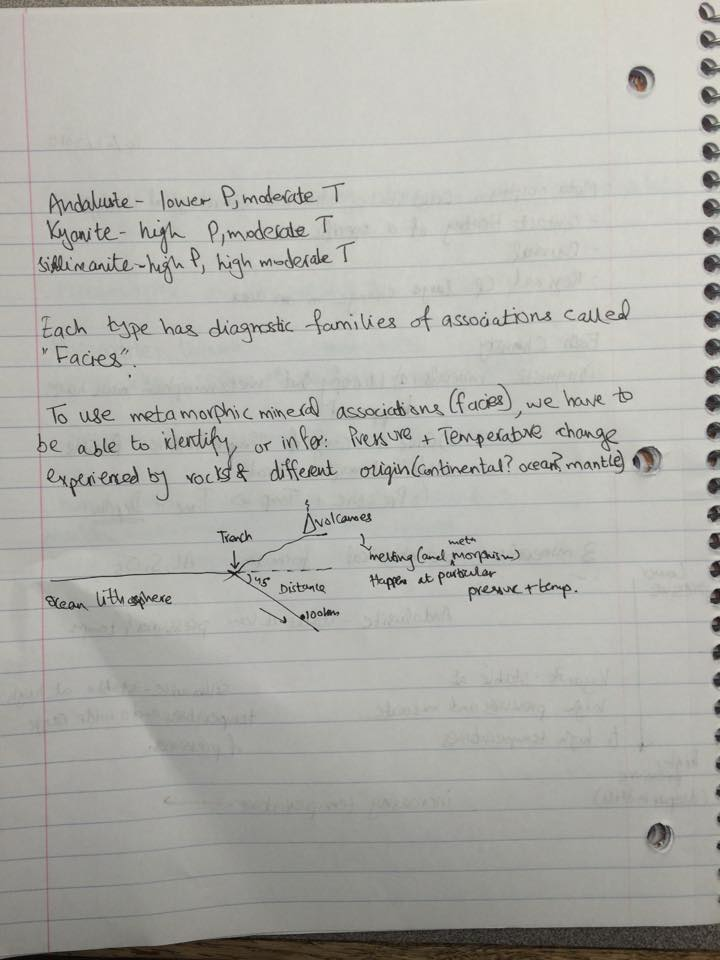 Andalusite - lower P, moderate T
Kyanite - high P, moderate T
Sillimanite - high P, high moderate T
Each type has diagnostic families of associations called
"Facies".
To use metamorphic mineral associations (facies), we have to
be able to identify, or infer: Pressure + Temperature change
experienced by rocks & different origin (continental? ocean? mantle)
volcanoes
Trench
meta
melting (and morphism)
45
Distance
Happens at particular
pressure + temp.
ocean lithosphere
100km